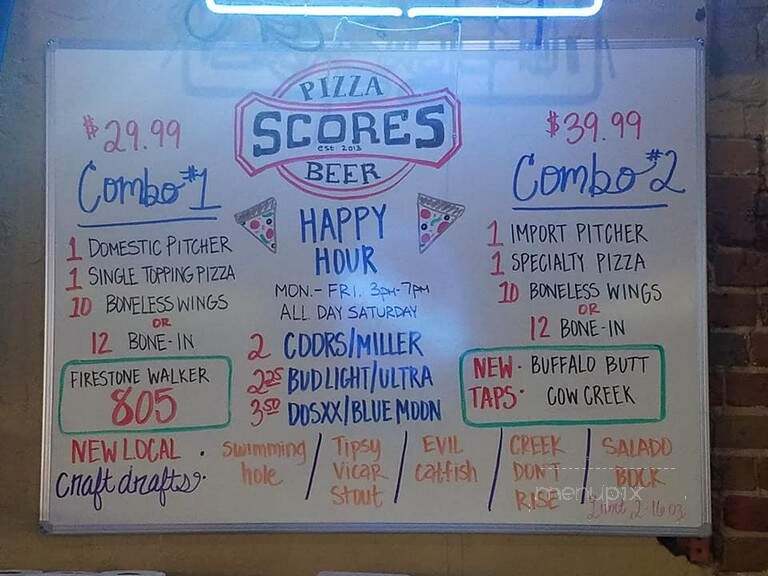 PIZZA
SCORES
est 2013
BEER
$29.99
Combo #1
1 DOMESTIC PITCHER
1 SINGLE TOPPING PIZZA
10 BONELESS WINGS
OR
12 BONE-IN
FIRESTONE WALKER
805
HAPPY
HOUR
MON.- FRI. 3PM-7PM
ALL DAY SATURDAY
2 COORS/MILLER
2.25 BUD LIGHT/ULTRA
3.50 DOSXX/BLUE MOON
$39.99
Combo #2
1 IMPORT PITCHER
1 SPECIALTY PIZZA
10 BONELESS WINGS
OR
12 BONE-IN
NEW· BUFFALO BUTT
TAPS· COW CREEK
NEW LOCAL
Craft drafts·
Swimming
hole
Tipsy
Vicar
Stout
EVIL
catfish
CREEK
DON'T
RISE
SALADO
BOCK
Limit 2-16 oz.
menupix